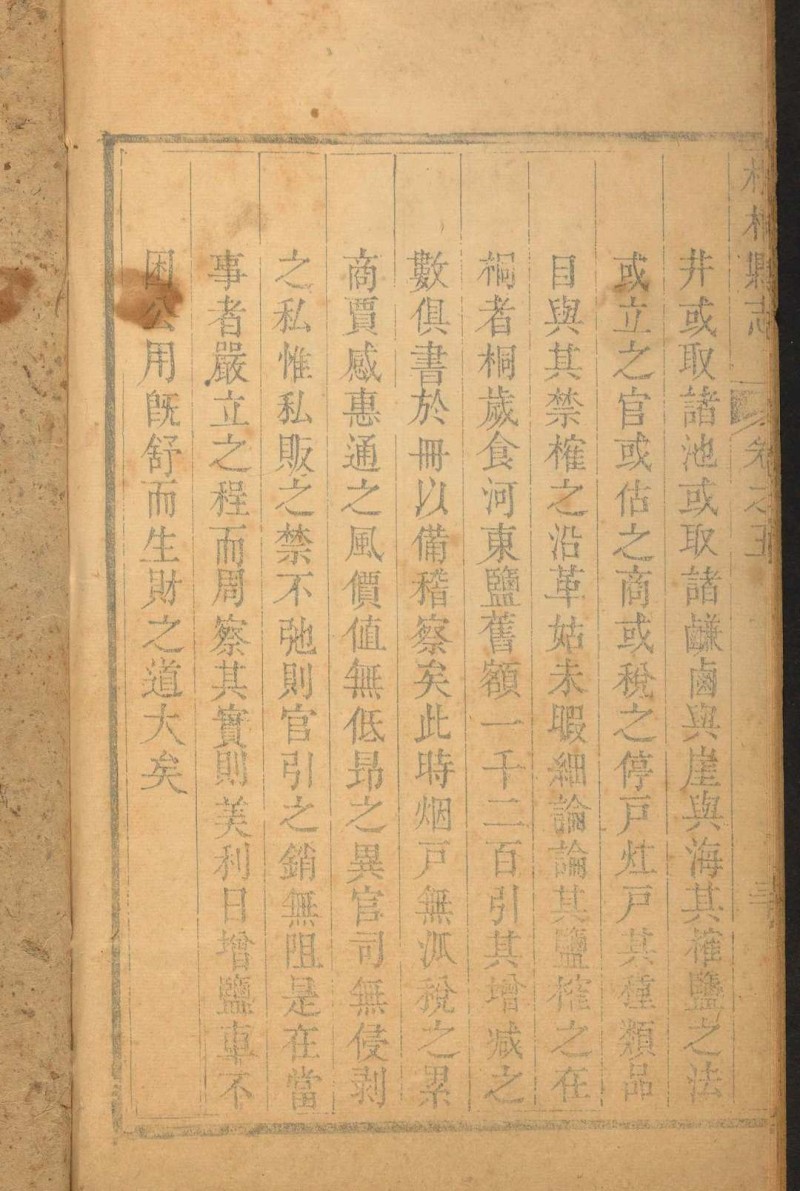 桐柏縣志 卷之五
井或取諸池或取諸鹻鹵與崖與海其榷鹽之法
或立之官或估之商或稅之停戶灶戶其種類品
目與其禁榷之沿革姑未暇細論論其鹽榷之在
桐者桐歲食河東鹽舊額一千二百引其增減之
數俱書於冊以備稽察矣此時烟戶無泒稅之累
商賈感惠通之風價值無低昂之異官司無侵剥
之私惟私販之禁不弛則官引之銷無阻是在當
事者嚴立之程而周察其實則美利日增鹽車不
困公用旣舒而生財之道大矣